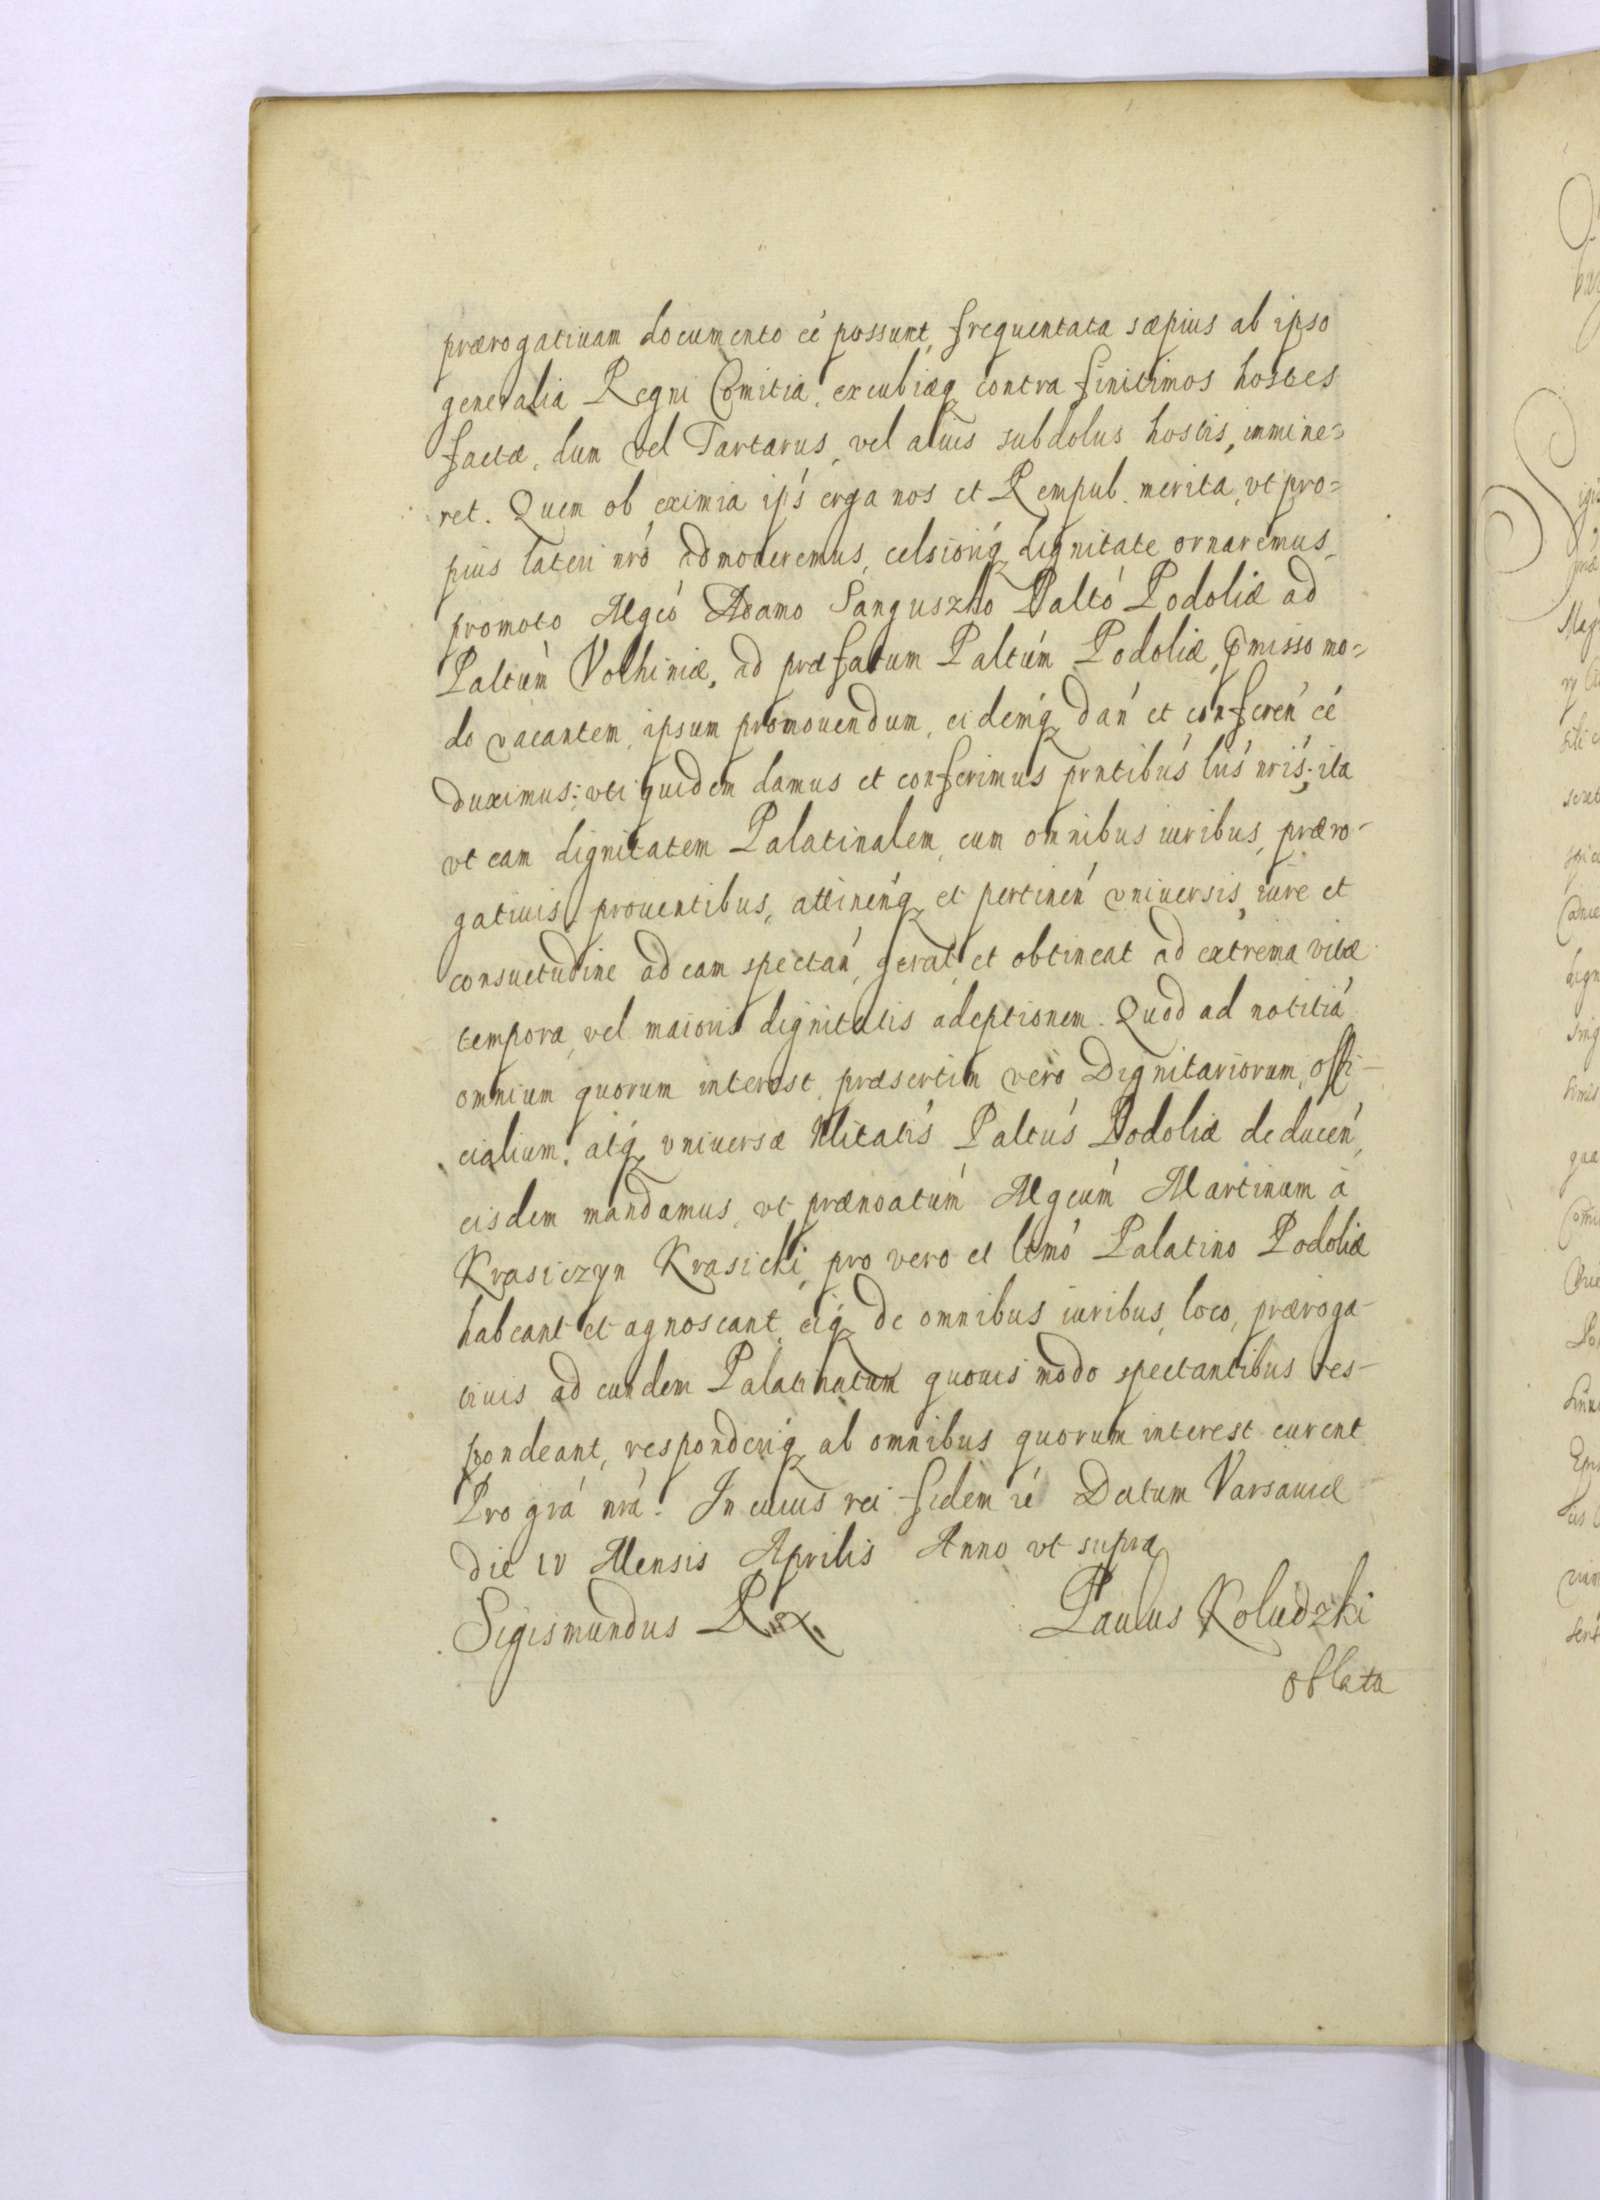 prærogatiuam documento eé possunt, frequentata sæpius ab ipso
generalia Regni Comitia, excubiæq contra finitimos hostes
factæ, dum vel Tartarus, vel alius subdolus hostis, immine=
ret. Quem ob eximia ips erga nos et Rempub. merita, vt pro=
pius lateri nró admoueremus, celsioriq dignitate ornaremus,
promoto Mgcó Adamo Sanguszko Paltó Podoliæ ad
Paltúm Volhiniæ, ad præfatum Paltúm Podoliæ, pmisso mo=
do vacantem, ipsum promouendum, eidemq dań et confereń eé
duximus: vti quidem damus et conferimus pntibús lris nris; ita
vt eam dignitatem Palatinalem, cum omnibus iuribus, præro-
gatiuis, prouentibus, attineńq et pertineń vniuersis, iure et
consuetudine ad eam spectań, gerat et obtineat ad extrema vitæ
tempora, vel maioris dignitatis adeptionem. Quod ad notitiá
omnium quorum interest, præsertim vero Dignitariorum, offi-
cialium, atq vniuersæ Nlitatis Paltús Podoliæ deduceń,
eisdem mandamus, vt prænoatúm Mgcúm Martinum à
Krasiczyn Krasicki, pro vero et ltmó Palatino Podoliæ
habeant et agnoscant, eiq de omnibus iuribus, loco, præroga-
tiuis ad eundem Palatinatum quouis modo spectantibus res-
pondeant, responderiq ab omnibus quorum interest curent
Pro grá nrá. In cuius rei fidem ié Datum Varsauiæ
die IV Mensis Aprilis Anno vt supra
Sigismundus Rex.
Paulus Koludzki
oblata